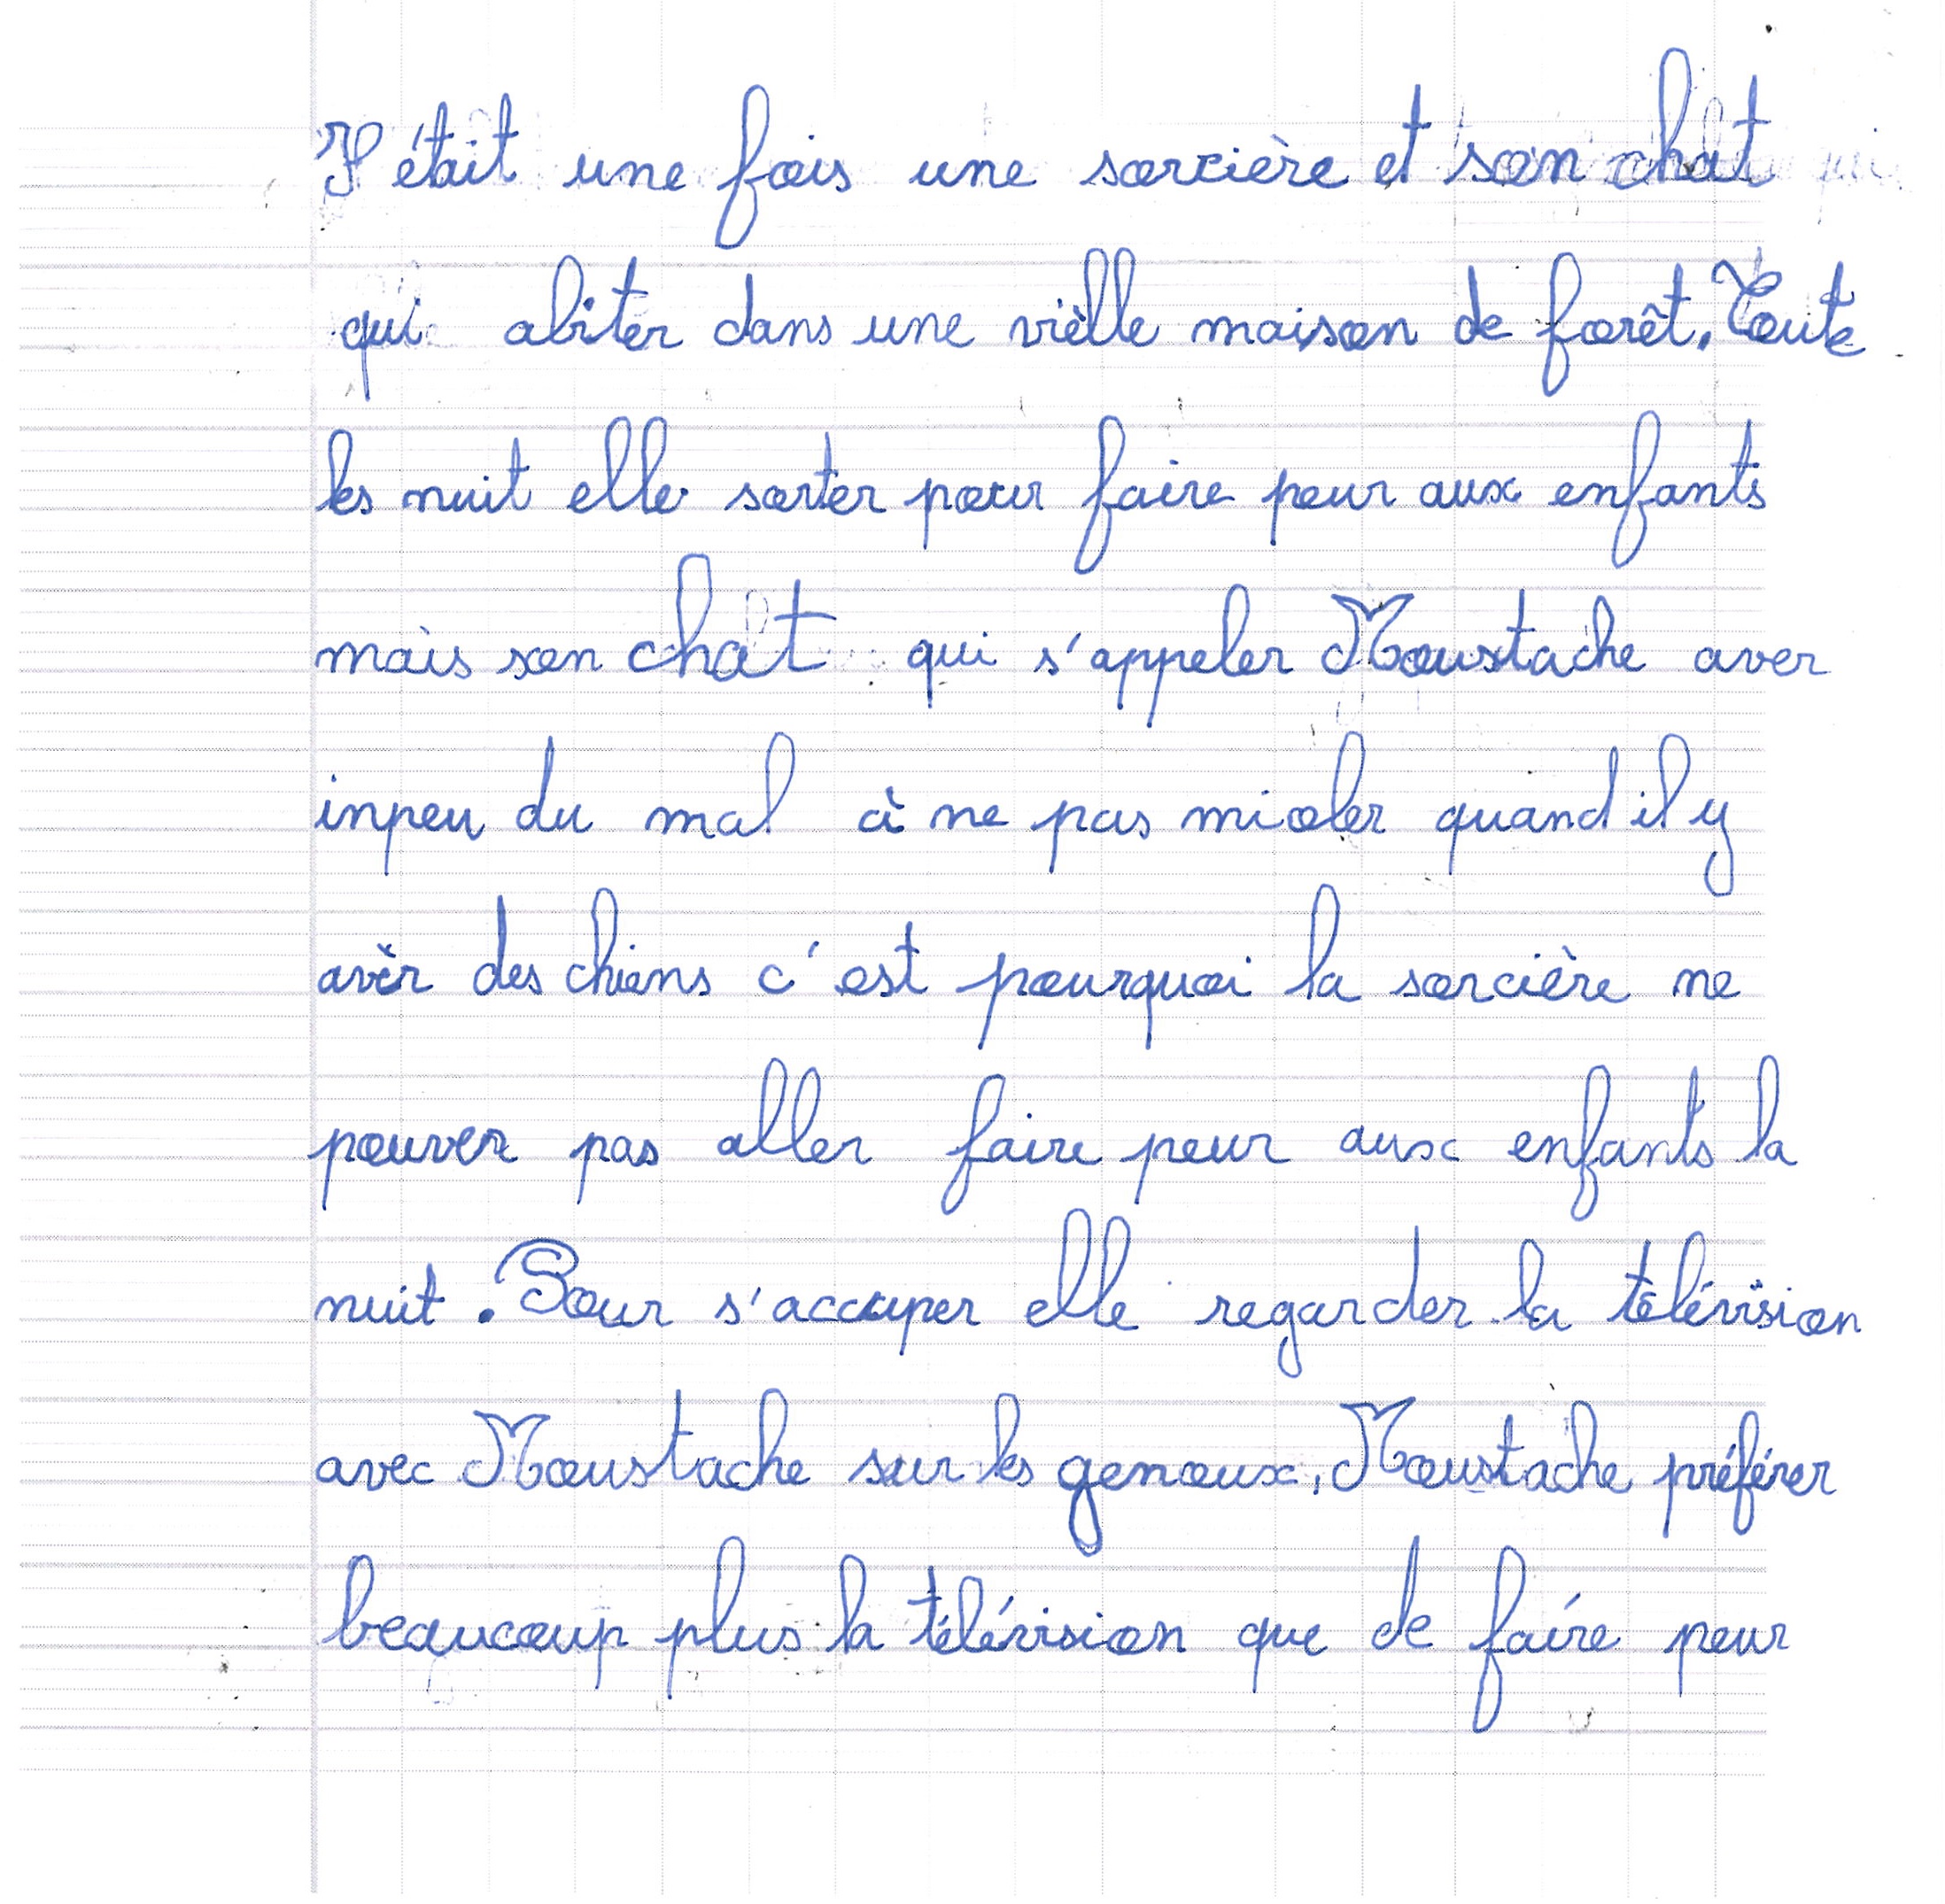 I était une fois une sorcière et son chat
qui abiter dans une vièlle maison de forêt. Toute
les nuit elle sorter pour faire peur aux enfants
mais son chat qui s'appeler Moustache aver
inpeu du mal à ne pas mioler quand il y
avèr des chiens c'est pourquoi la sorcière ne
pouver pas aller faire peur aux enfants la
nuit. Pour s'accuper elle regarder la télévision
avec Moustache sur les genoux. Moustache préférer
beaucoup plus la télévision que de faire peur